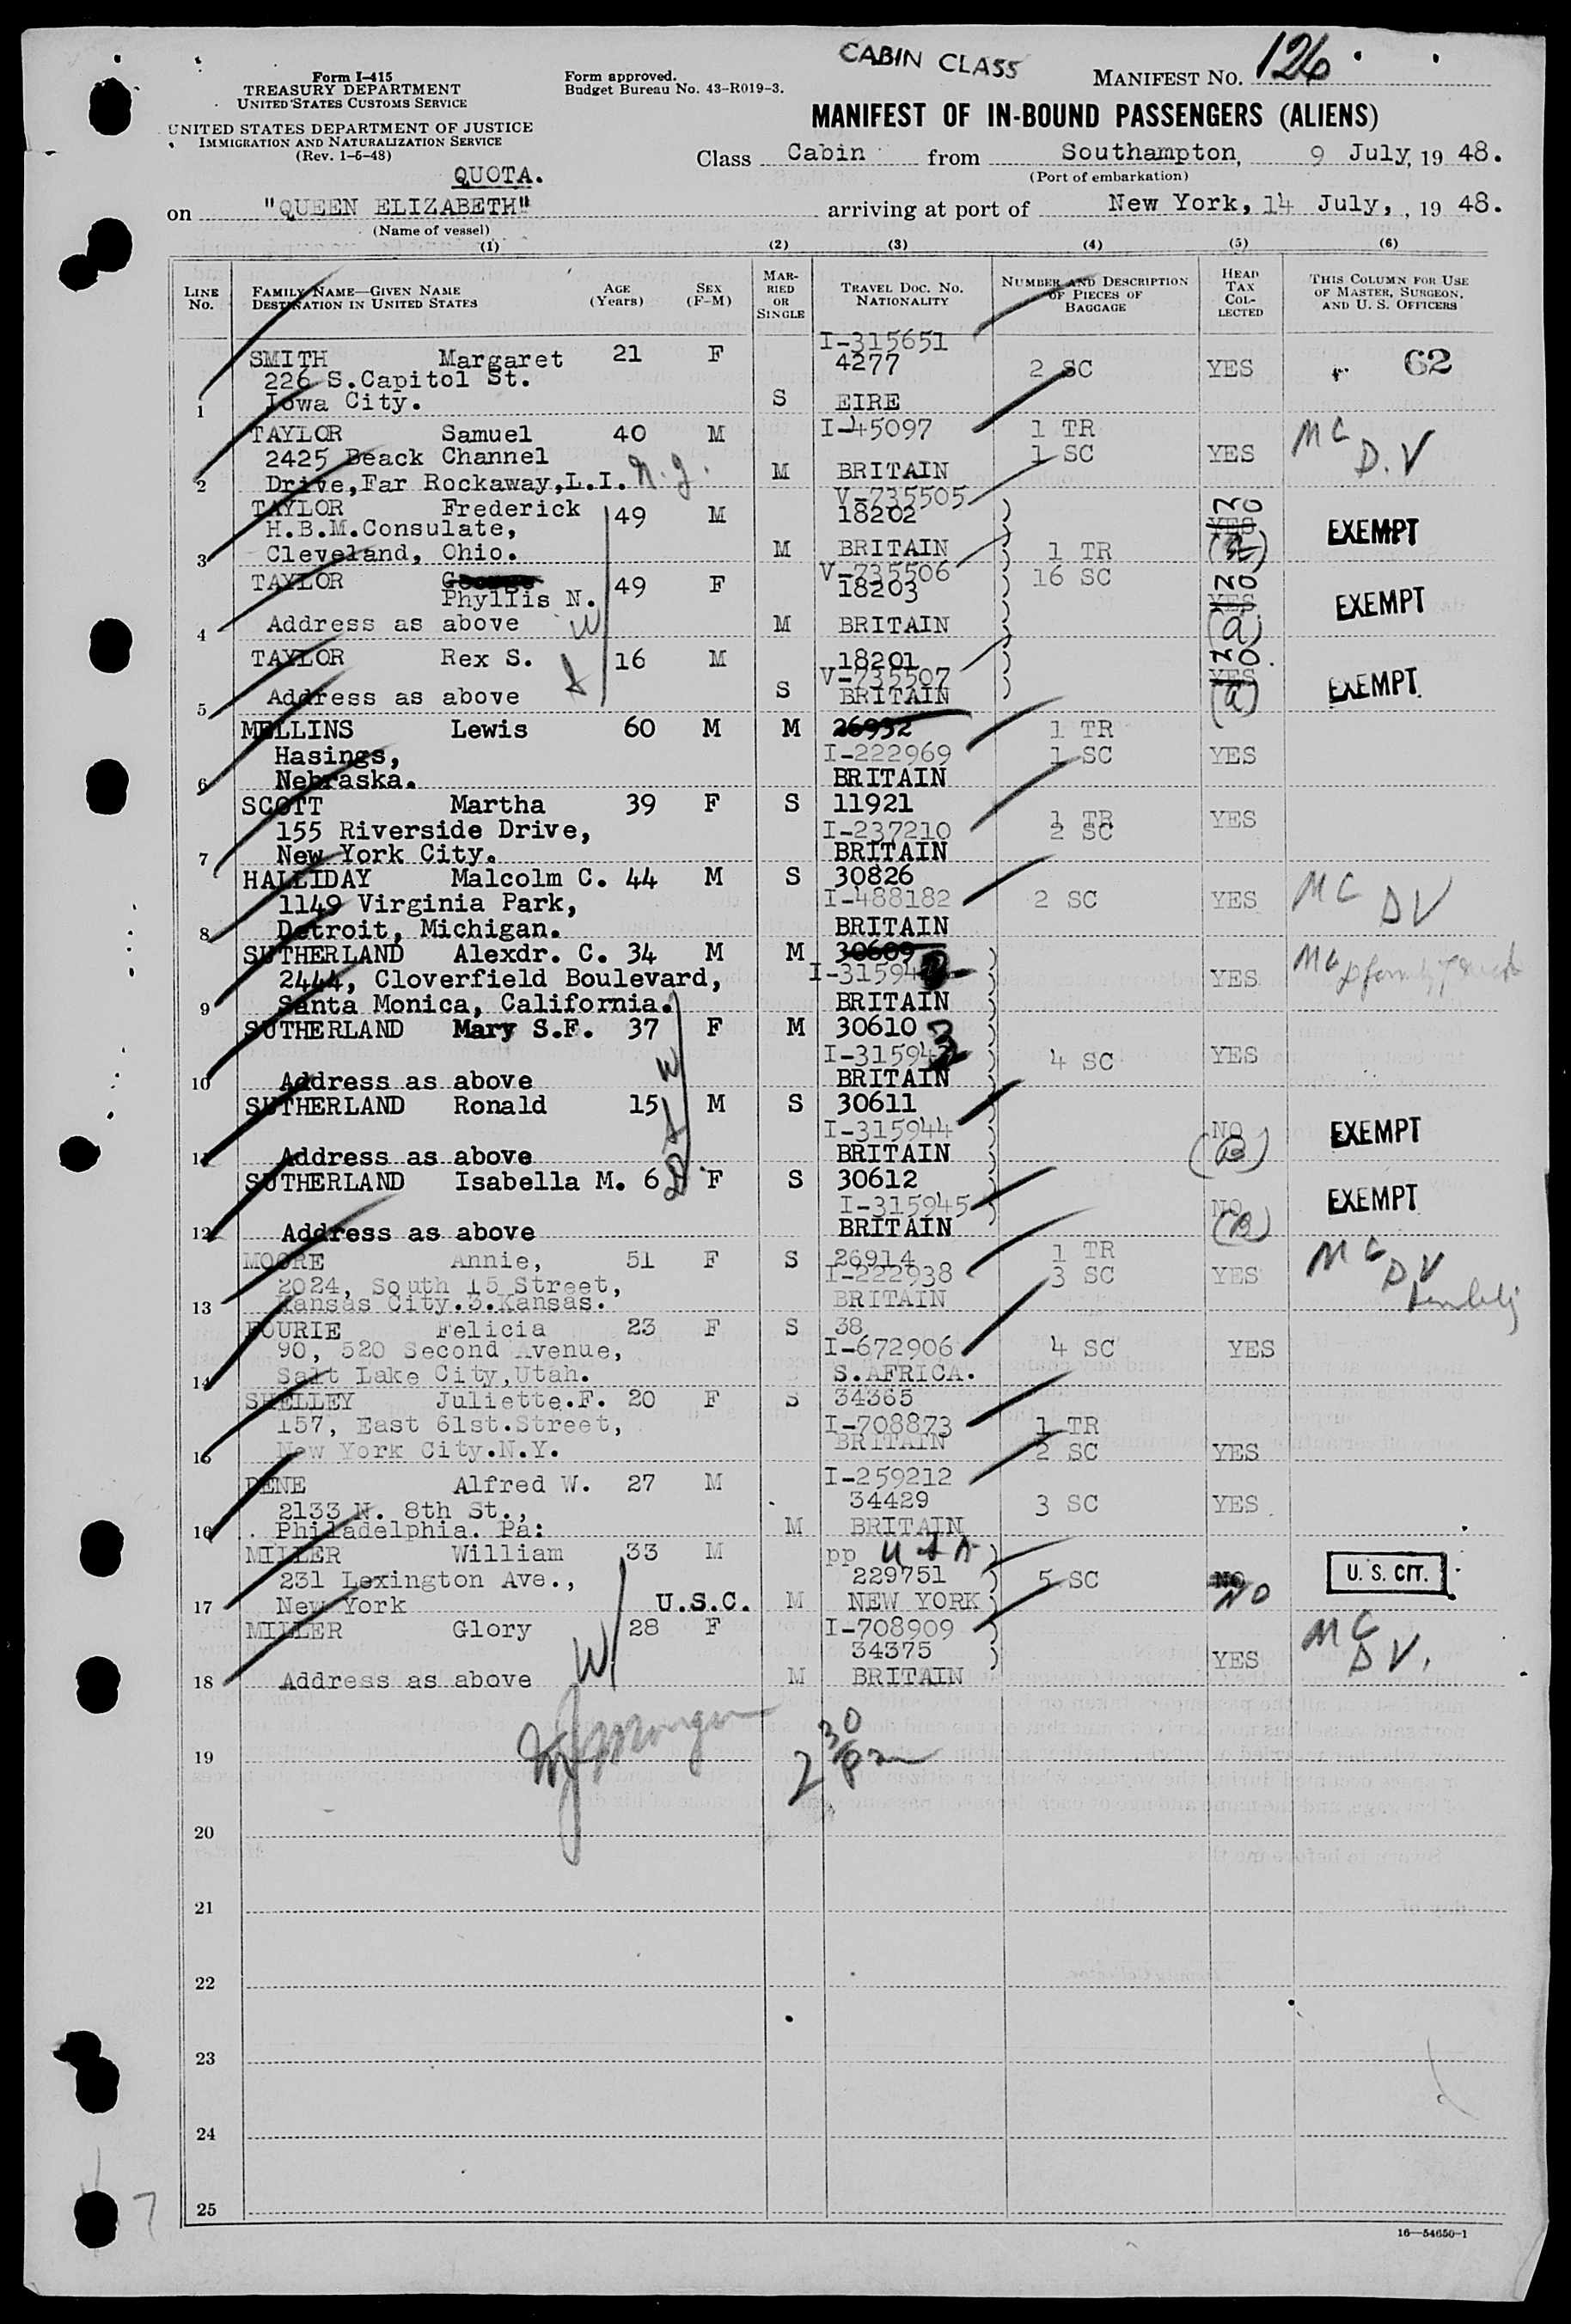 CABIN CLASS
Form I-415
TREASURY DEPARTMENT
UNITED STATES CUSTOMS SERVICE
Form approved.
Budget Bureau No. 43-R019-3.
MANIFEST NO. 126
UNITED STATES DEPARTMENT OF JUSTICE
IMMIGRATION AND NATURALIZATION SERVICE
(Rev. 1-6-48)
MANIFEST OF IN-BOUND PASSENGERS (ALIENS)
Class Cabin from Southampton, 9 July, 19 48.
(Port of embarkation)
QUOTA.
on "QUEEN ELIZABETH" arriving at port of New York, 14 July, , 19 48.
(Name of vessel)
(1) (2) (3) (4) (5) (6)
LINE No. FAMILY NAME—GIVEN NAME DESTINATION IN UNITED STATES AGE (Years) SEX (F-M) MARRIED OR SINGLE TRAVEL DOC. NO. NATIONALITY NUMBER AND DESCRIPTION OF PIECES OF BAGGAGE HEAD TAX COLLECTED THIS COLUMN FOR USE OF MASTER, SURGEON, AND U. S. OFFICERS
I-315651
SMITH Margaret 21 F 4277 2 SC YES 62
226 S.Capitol St.
1 Iowa City. S EIRE
TAYLOR Samuel 40 M I-45097 1 TR
2425 Beack Channel 1 SC YES MC D.V
2 Drive,Far Rockaway,L.I. N.J. M BRITAIN
V-735505
TAYLOR Frederick 49 M 18202 NO YES EXEMPT
H.B.M.Consulate,
3 Cleveland, Ohio. M BRITAIN 1 TR
V-735506
TAYLOR George 49 F 18203 16 SC NO YES EXEMPT
Phyllis N.
4 Address as above W M BRITAIN (a)
TAYLOR Rex S. 16 M 18201 NO. YES EXEMPT
V-735507
5 Address as above S BRITAIN (a)
MELLINS Lewis 60 M M 26932 1 TR
Hasings, I-222969 1 SC YES
6 Nebraska. BRITAIN
SCOTT Martha 39 F S 11921 1 TR
155 Riverside Drive, I-237210 2 SC YES
7 New York City. BRITAIN
HALLIDAY Malcolm C. 44 M S 30826
1149 Virginia Park, I-488182 2 SC YES MC DV
8 Detroit, Michigan. BRITAIN
SUTHERLAND Alexdr. C. 34 M M 30609
2444, Cloverfield Boulevard, I-31594 YES MC
9 Santa Monica, California. BRITAIN
SUTHERLAND Mary S.F. 37 F M 30610
W I-315943 4 SC YES
10 Address as above BRITAIN
SUTHERLAND Ronald 15 M S 30611
I-315944 NO EXEMPT
11 Address as above BRITAIN (B)
SUTHERLAND Isabella M. 6 F S 30612
I-315945 NO EXEMPT
12 Address as above BRITAIN (B)
MOORE Annie, 51 F S 26914 1 TR
2024, South 15 Street, I-222938 3 SC YES MC DV
13 Kansas City.3.Kansas. BRITAIN
FOURIE Felicia 23 F S 38
90, 520 Second Avenue, I-672906 4 SC YES
14 Salt Lake City,Utah. S.AFRICA.
SHELLEY Juliette.F. 20 F S 34365
157, East 61st.Street, I-708873 1 TR
15 New York City.N.Y. BRITAIN 2 SC YES
DENE Alfred W. 27 M I-259212
2133 N. 8th St., 34429 3 SC YES
16 Philadelphia. Pa: M BRITAIN
MILLER William 33 M pp USA
231 Lexington Ave., 229751 5 SC NO NO U. S. CIT.
17 New York U.S.C. M NEW YORK
MILLER Glory 28 F I-708909
W 34375 YES MC DV.
18 Address as above M BRITAIN
19 2 30 Pm
20
21
22
23
24
25
7
16—54650-1